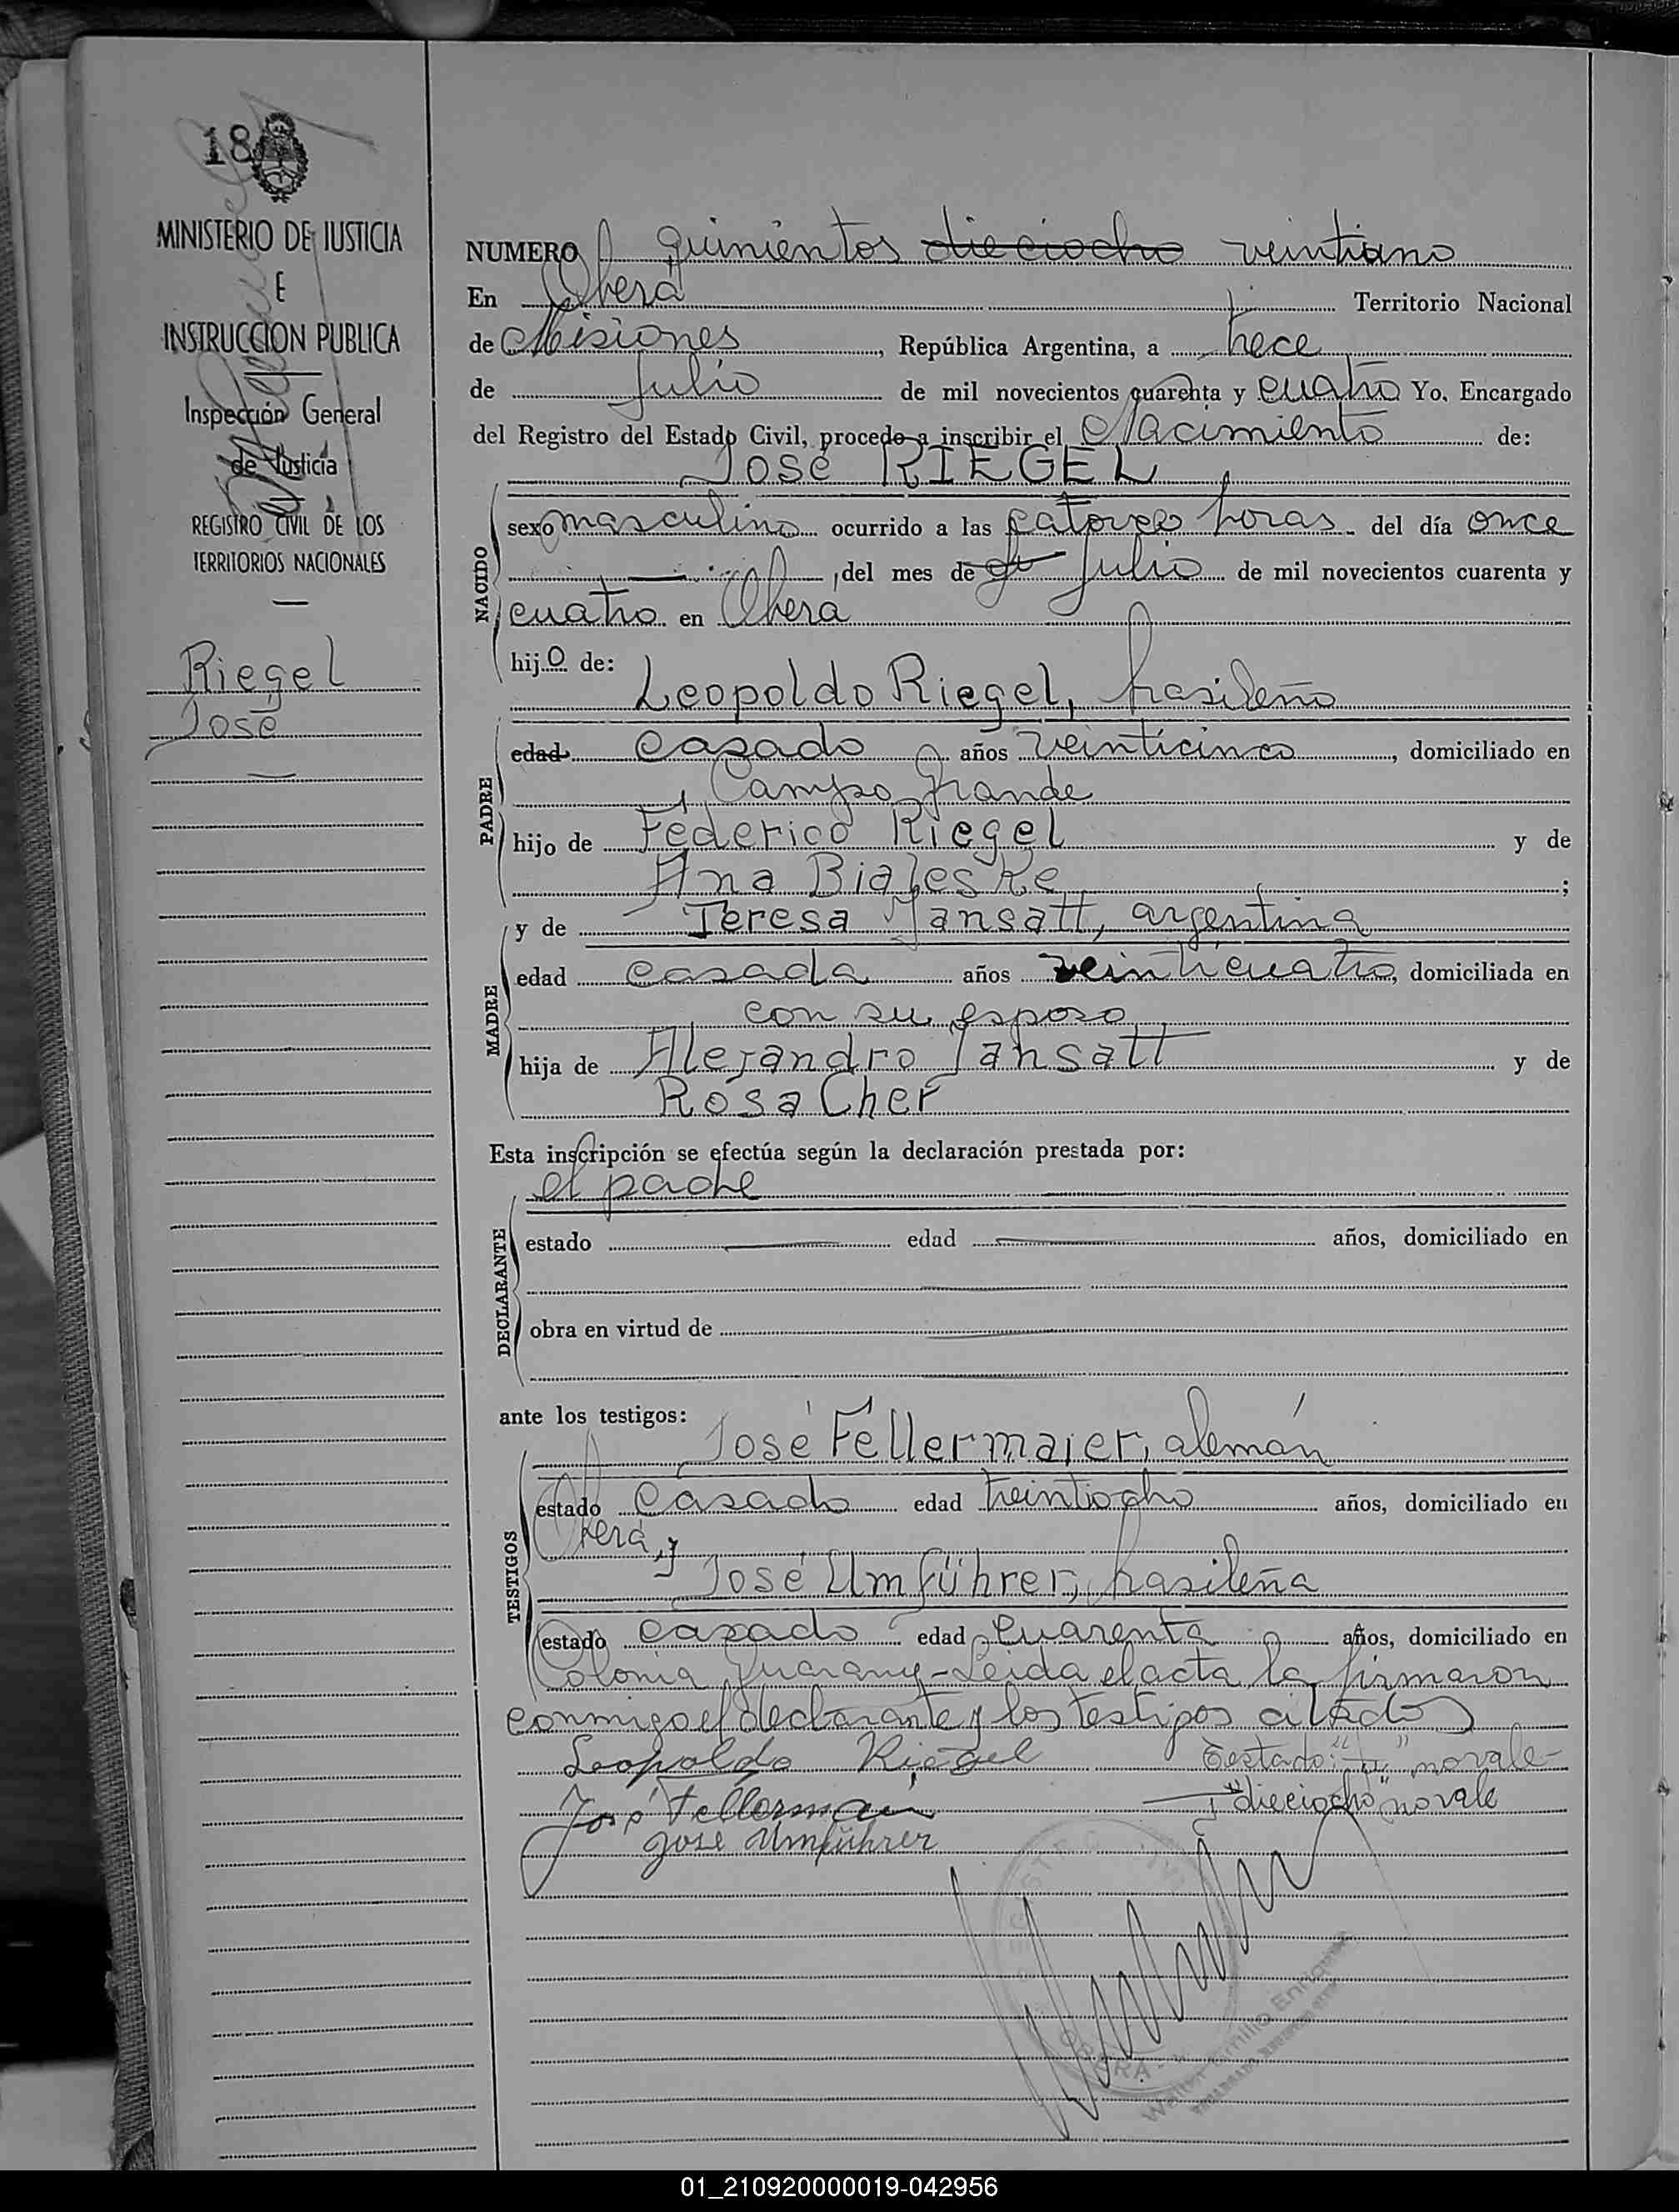 18
MINISTERIO DE JUSTICIA
E
INSTRUCCION PUBLICA
Inspección General
de Justicia
REGISTRO CIVIL DE LOS
TERRITORIOS NACIONALES
Riegel
José
NUMERO quinientos dieciocho veintiuno
En Oberá Territorio Nacional
de Misiones, República Argentina, a trece
de Julio de mil novecientos cuarenta y cuatro Yo, Encargado
del Registro del Estado Civil, procedo a inscribir el Nacimiento de:
José RIEGEL
NACIDO
sexo masculino ocurrido a las catorce horas del día once
, del mes de Julio de mil novecientos cuarenta y
cuatro en Oberá
hijo de:
Leopoldo Riegel, brasileño
PADRE
edad casado años veinticinco, domiciliado en
Campo Grande
hijo de Federico Riegel y de
Ana Bialeske;
y de Teresa Jansatt, argentina
MADRE
edad casada años veinticuatro, domiciliada en
con su esposo
hija de Alejandro Jansatt y de
Rosa Cher
Esta inscripción se efectúa según la declaración prestada por:
el padre
DECLARANTE
estado edad años, domiciliado en
obra en virtud de
ante los testigos:
José Fellermaier, alemán
TESTIGOS
estado casado edad treintiocho años, domiciliado en
Oberá, y
José Umführer, brasileña
estado casado edad cuarenta años, domiciliado en
Colonia Guarany - Leida el acta la firmaron
conmigo el declarante y los testigos citados
Leopoldo Riegel Testado: no vale-
"dieciocho" no vale
José Fellermaier
José Umführer
OBERA
01_210920000019-042956